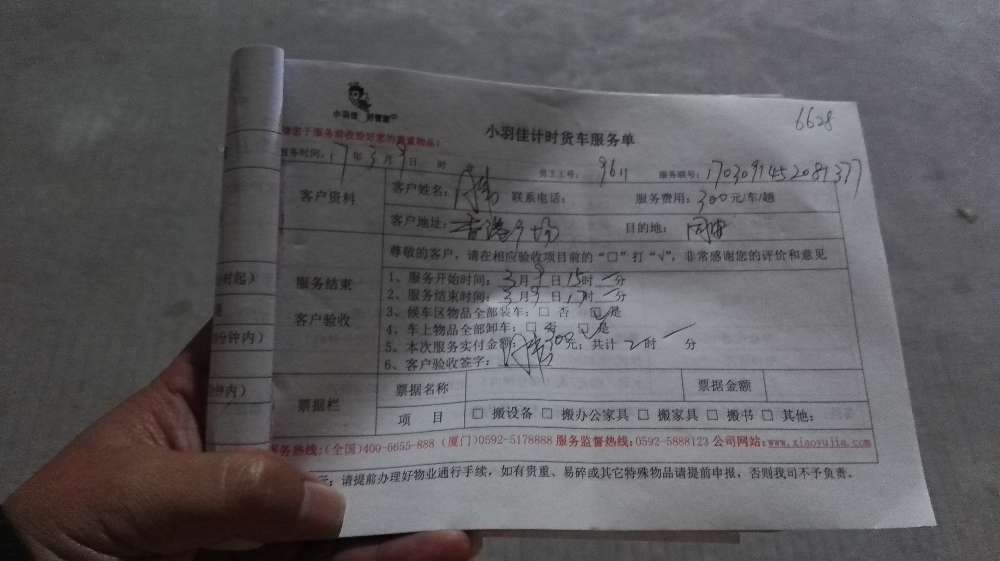 小羽佳 好管家
6628
小羽佳计时货车服务单
请您于服务前收拾好您的贵重物品!
服务时间: 17年3月9日 时 员工工号: 9611 服务联号: 1703091452081377
客户资料 客户姓名: 联系电话: 服务费用: 300元/车/趟
客户地址: 香港广场 目的地: 同安
尊敬的客户,请在相应验收项目前的“□”打“√”,非常感谢您的评价和意见
服务结束
客户验收
1、服务开始时间: 3月9日15时一分
2、服务结束时间: 3月9日17时一分
3、候车区物品全部装车: □ 否 ☑ 是
4、车上物品全部卸车: □ 否 ☑ 是
5、本次服务实付金额: 300元; 共计 2时一分
6、客户验收签字:
票据栏 票据名称 票据金额
项 目 □ 搬设备 □ 搬办公家具 □ 搬家具 □ 搬书 □ 其他:
服务热线:(全国)400-6655-888 (厦门)0592-5178888 服务监督热线:0592-5888123 公司网站:www.xiaoyujia.com
请提前办理好物业通行手续,如有贵重、易碎或其它特殊物品请提前申报,否则我司不予负责。
时起)
分钟内)
钟内)